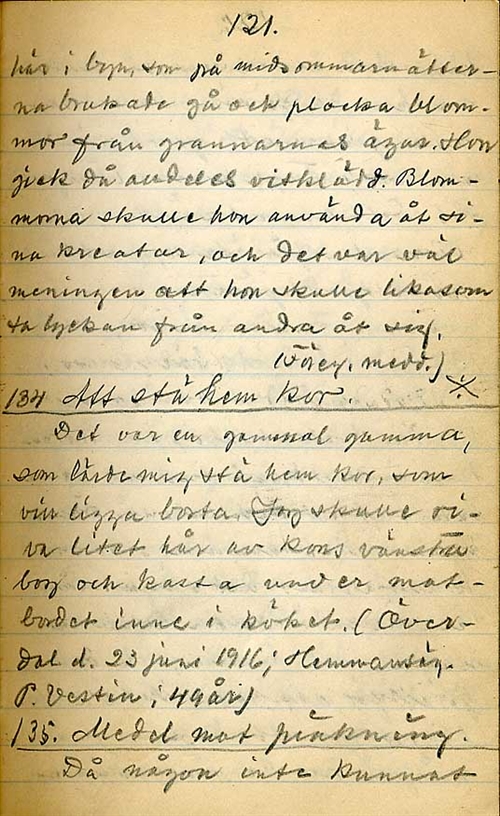 121.
här i byn, som på midsommarnätter-
na brukade gå och plocka blom-
mor från grannarnas ägor. Hon
gick då alldeles vitklädd. Blom-
morna skulle hon använda åt si-
na kreatur, och det var väl
meningen att hon skulle likasom
ta lyckan från andra åt sig.
(Föreg. medd.)
134 Att stä hem kor. ·/·
Det var en gammal gumma,
som lärde mig stä hem kor, som
vin ligga borta. Jag skulle ri-
va litet hår av kons vänstra
bog och kasta under mat-
bordet inne i köket. (Över-
dal d. 23 juni 1916; Hemmansäg.
P. Vestin; 49 år)
135. Medel mot
Då någon inte kunnat